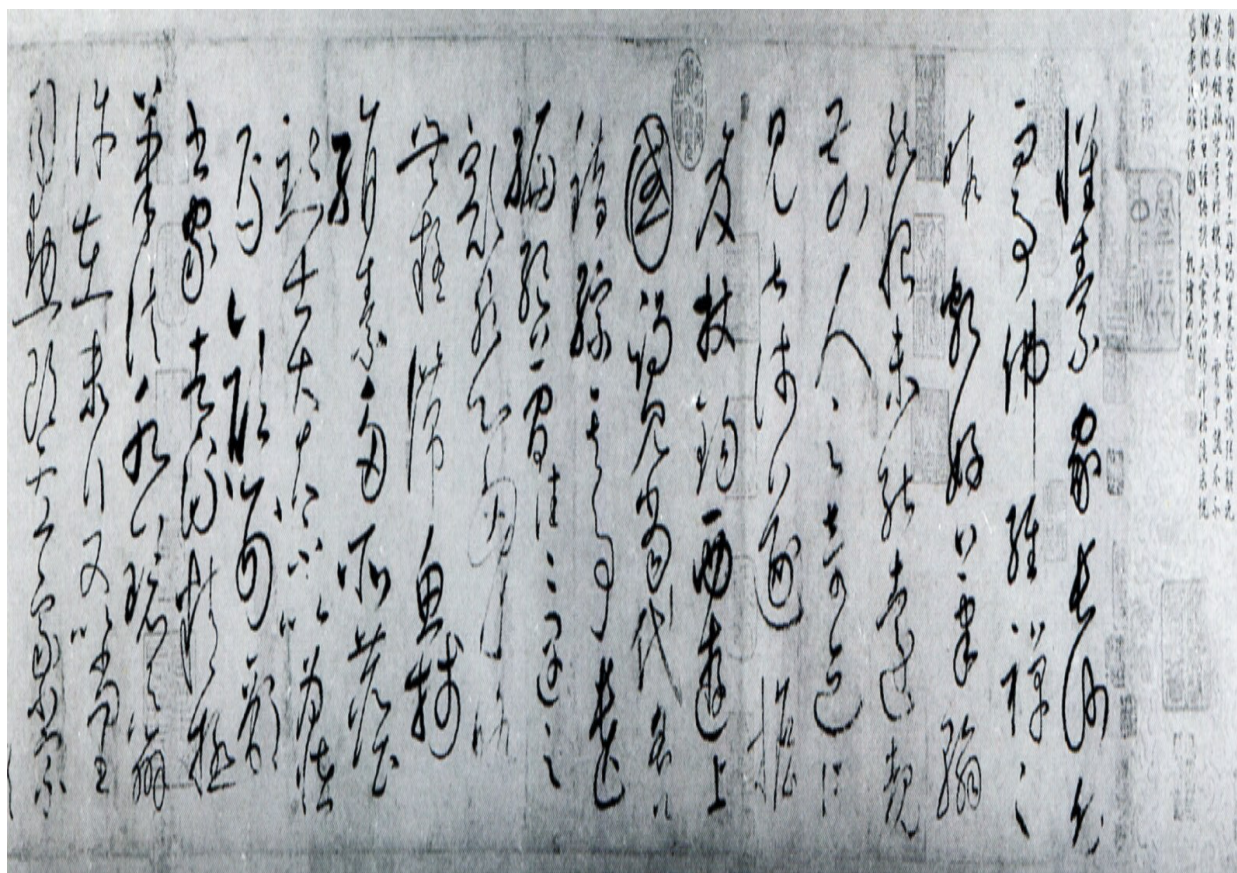 懷素家長沙幼
而事佛經禪之
暇頗好筆翰
然恨未能遠覩
前人之奇迹所
見甚淺遂擔
笈杖錫西遊上
國謁見當代名公
錯綜其事遺
編絕簡往往遇之
豁然心胸略
無疑滯魚牋
絹素多所塵
點士大夫不以為怪
焉顏刑部
書家者流精極
筆法水鏡之辨
許在末行又以尚書
司勳郎盧象小宗